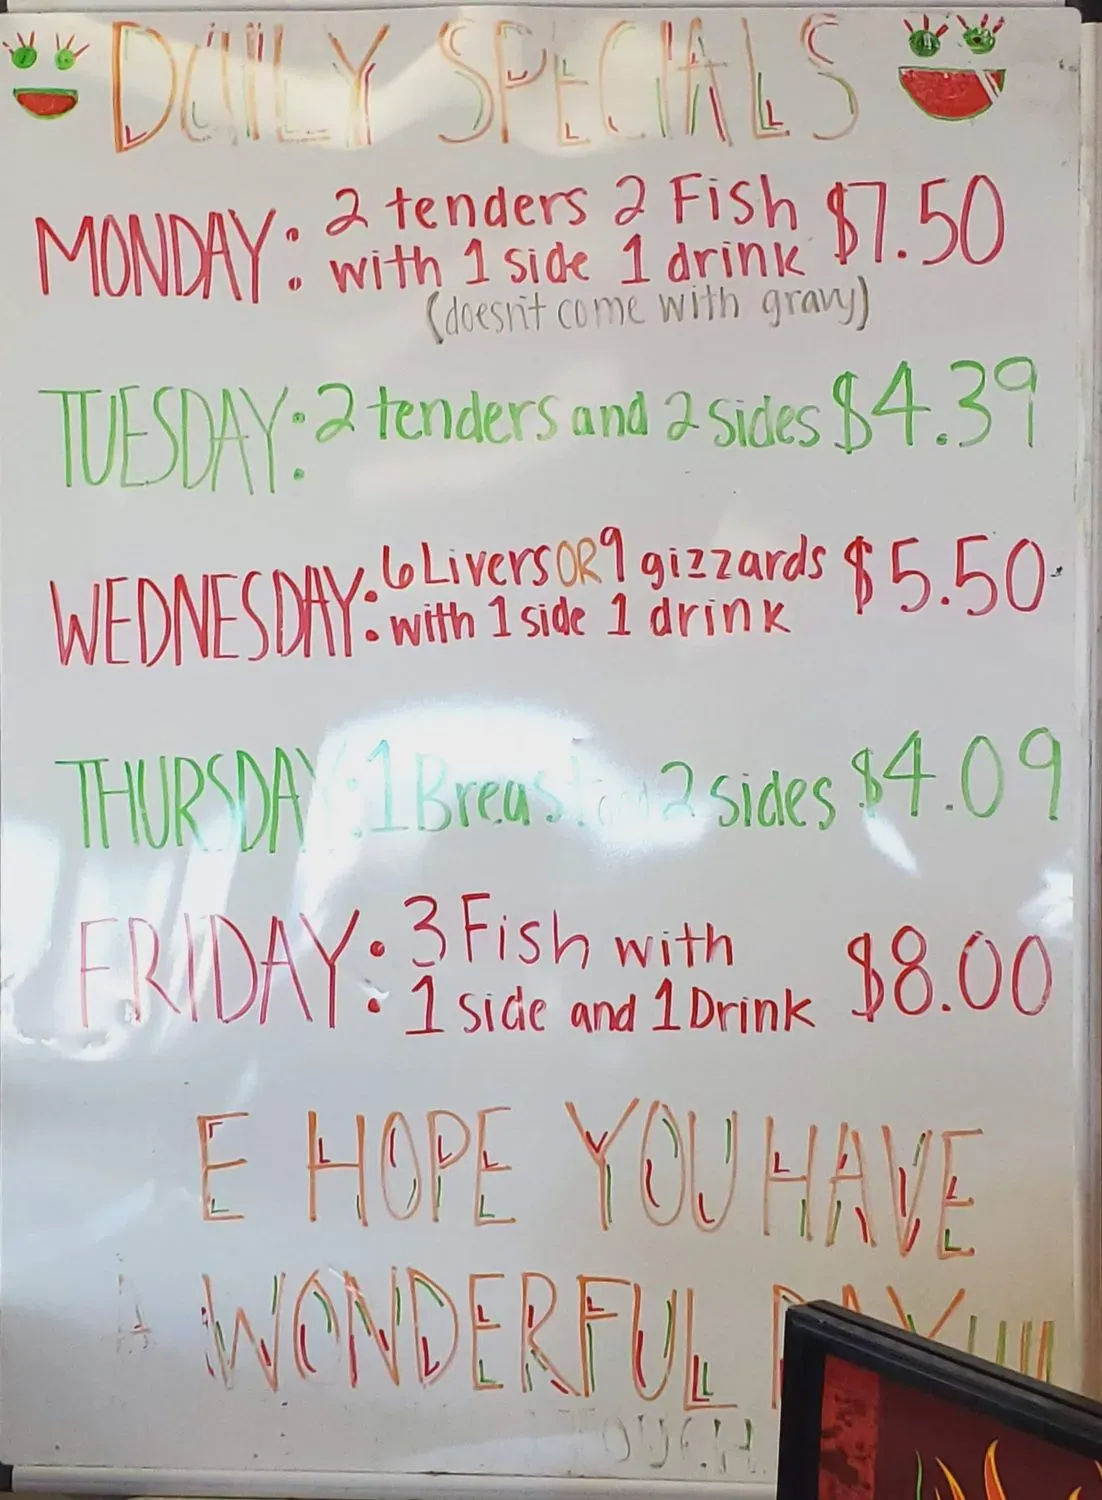 DAILY SPECIALS
MONDAY: 2 tenders 2 Fish $7.50
with 1 side 1 drink
(doesn't come with gravy)
TUESDAY: 2 tenders and 2 sides $4.39
WEDNESDAY: 6 Livers OR 9 gizzards $5.50
with 1 side 1 drink
THURSDAY: 1 Breast 2 sides $4.09
FRIDAY: 3 Fish with $8.00
1 side and 1 Drink
E HOPE YOU HAVE
A WONDERFUL DAY!!!!